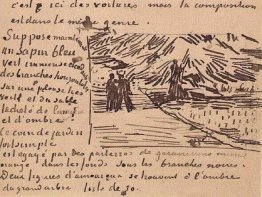 c'est ici des voitures mais la composition
est dans le même genre.
Suppose maintenant
un sapin bleu
vert immense étend
des branches horizontales
sur une pelouse très
verte et du sable
tacheté de lumière
et d'ombre
Ce coin de jardin
fort simple
est égayé par des parterres de géraniums
orange dans les fonds sous les branches noires.
Deux figures d'amoureux se trouvent à l'ombre
du grand arbre toile de 30.